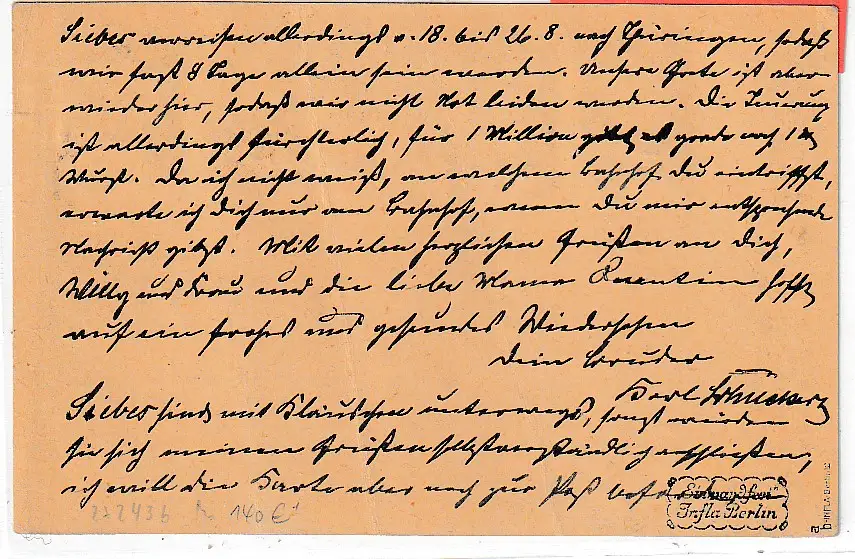 Siebes verreisen allerdings v. 18. bis 26.8. nach Thüringen, sodaß
wir fast 8 Tage allein sein werden. Unsere Grete ist aber
wieder hier, sodaß wir nicht Not leiden werden. Die Teuerung
ist allerdings fürchterlich, für 1 Million gibt es grade noch 1
Wurst. Da ich nicht weiß, an welchem Bahnhof Du eintriffst,
erwarte ich Dich nur am Bahnhof, wenn Du mir entsprechende
Nachricht gibst. Mit vielen herzlichen Grüßen an Dich,
Willy und Frau und die liebe Mama Quentin hofft
auf ein frohes und gesundes Wiedersehen
Dein Bruder
Karl
Siebes sind mit Kläuschen unterwegs, sonst würden
sie sich meinen Grüßen selbstverständlich anschließen,
ich will die Karte aber noch zur Post
"Einwandfrei"
Infla Berlin
272436 140 €
INFLA-Berlin